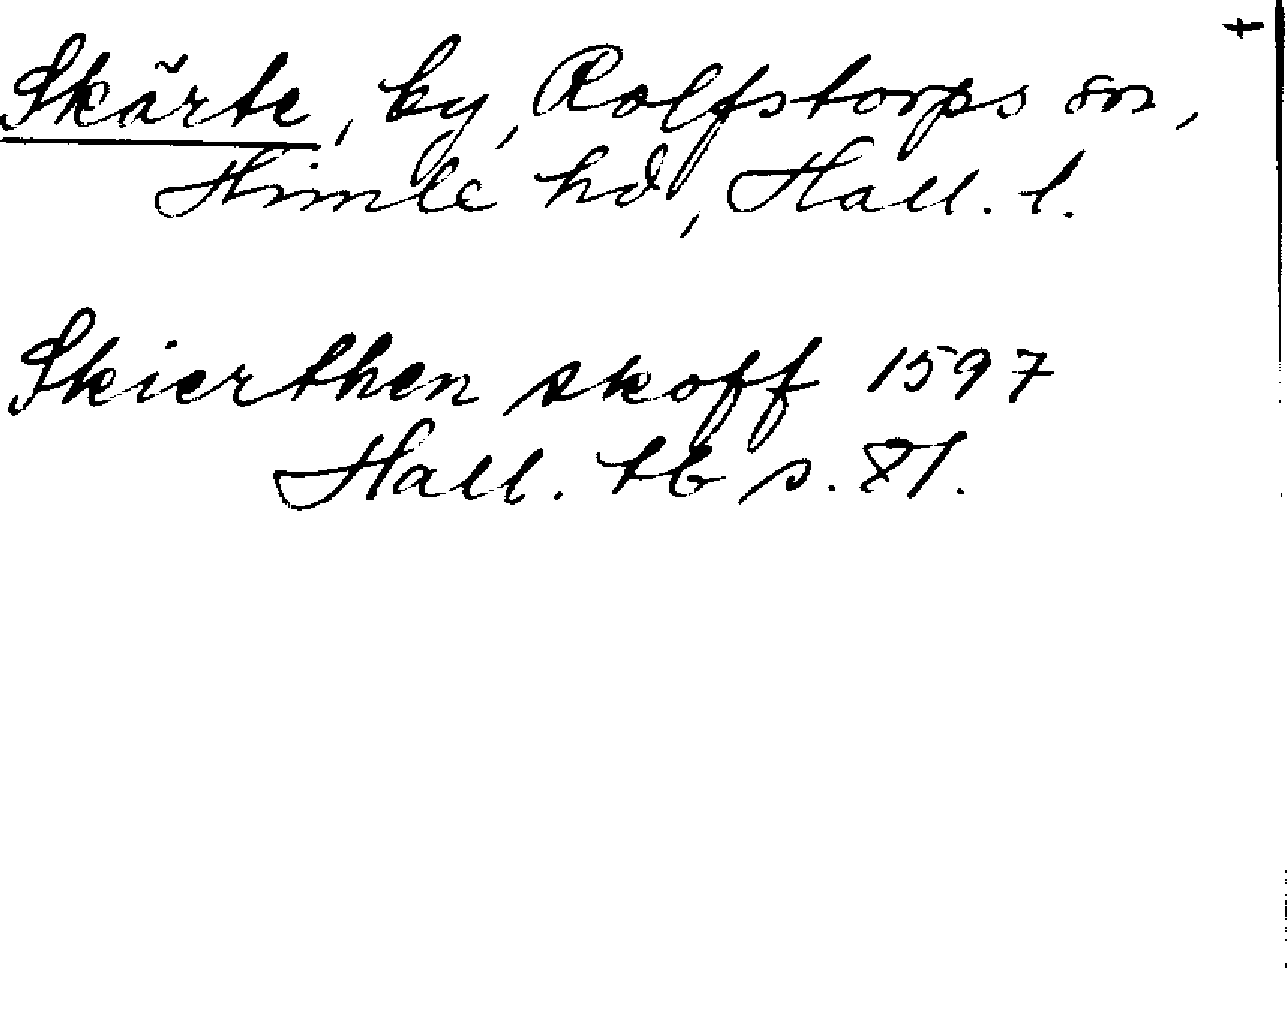 Skärte, by, Rolfstorps sn,
Himle hd, Hall. l.
Skierthen skoff 1597
Hall. tb s. 81.